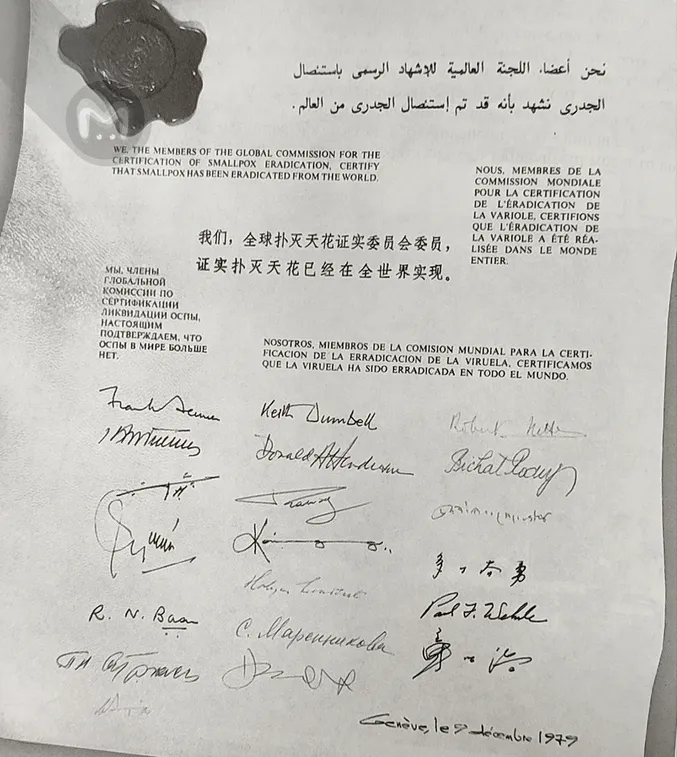 نحن أعضاء اللجنة العالمية للإشهاد الرسمى باستئصال
الجدرى نشهد بأنه قد تم إستئصال الجدرى من العالم .
WE, THE MEMBERS OF THE GLOBAL COMMISSION FOR THE
CERTIFICATION OF SMALLPOX ERADICATION, CERTIFY
THAT SMALLPOX HAS BEEN ERADICATED FROM THE WORLD.
NOUS, MEMBRES DE LA
COMMISSION MONDIALE
POUR LA CERTIFICATION
DE L'ÉRADICATION DE
LA VARIOLE, CERTIFIONS
QUE L'ÉRADICATION DE
LA VARIOLE A ÉTÉ RÉA-
LISÉE DANS LE MONDE
ENTIER.
我们，全球扑灭天花证实委员会委员，
证实扑灭天花已经在全世界实现。
МЫ, ЧЛЕНЫ
ГЛОБАЛЬНОЙ
КОМИССИИ ПО
СЕРТИФИКАЦИИ
ЛИКВИДАЦИИ ОСПЫ,
НАСТОЯЩИМ
ПОДТВЕРЖДАЕМ, ЧТО
ОСПЫ В МИРЕ БОЛЬШЕ
НЕТ.
NOSOTROS, MIEMBROS DE LA COMISION MUNDIAL PARA LA CERTI-
FICACION DE LA ERRADICACION DE LA VIRUELA, CERTIFICAMOS
QUE LA VIRUELA HA SIDO ERRADICADA EN TODO EL MUNDO.
Frank Keith Dumbell Robert
Donald A Henderson
R. N. Basu
С. Маренникова
Genève, le 9 décembre 1979